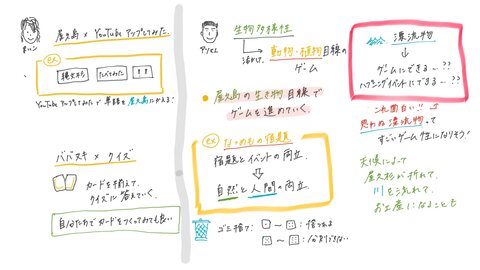 屋久島 × YouTube アップしてみた。
ex
縄文杉
たべてみた
!?
YouTube アップしてみたで 単語を屋久島にかえる!
ババヌキ × クイズ
カードを揃えて
クイズに答えていく。
自分たちでカードをつくってみても良い
生物多様性
動物・植物目線の
ゲーム
屋久島の生き物目線で
ゲームを進めていく。
ex
なつやすみの宿題
宿題とイベントの両立
自然と人間の両立。
ゴミ捨て:
〜
: 捨てれる
〜
漂流物
ゲームにできる〜??
ハプニングイベントにできる〜??
これ面白い!!
思わぬ漂流物って
すごいゲーム性になりそう!
天候によって
屋久杉が折れて、
川を流れて、
お土産になることも